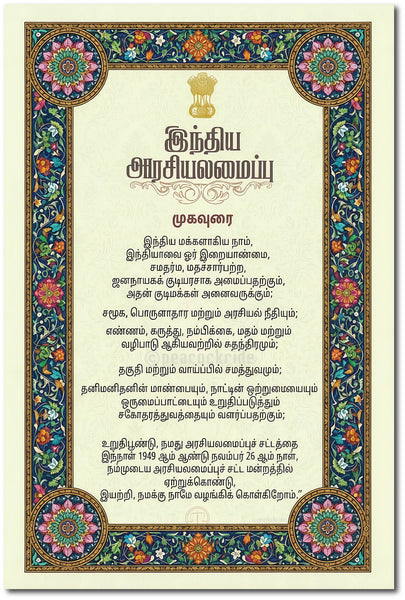 இந்திய
அரசியலமைப்பு
முகவுரை
இந்திய மக்களாகிய நாம்,
இந்தியாவை ஓர் இறையாண்மை,
சமதர்ம, மதச்சார்பற்ற,
ஜனநாயகக் குடியரசாக அமைப்பதற்கும்,
அதன் குடிமக்கள் அனைவருக்கும்;
சமூக, பொருளாதார மற்றும் அரசியல் நீதியும்;
எண்ணம், கருத்து, நம்பிக்கை, மதம் மற்றும்
வழிபாடு ஆகியவற்றில் சுதந்திரமும்;
©peacockride
தகுதி மற்றும் வாய்ப்பில் சமத்துவமும்;
தனிமனிதனின் மாண்பையும், நாட்டின் ஒற்றுமையையும்
ஒருமைப்பாட்டையும் உறுதிப்படுத்தும்
சகோதரத்துவத்தையும் வளர்ப்பதற்கும்;
உறுதிபூண்டு, நமது அரசியலமைப்புச் சட்டத்தை
இந்நாள் 1949 ஆம் ஆண்டு நவம்பர் 26 ஆம் நாள்,
நம்முடைய அரசியலமைப்புச் சட்ட மன்றத்தில்
ஏற்றுக்கொண்டு,
இயற்றி, நமக்கு நாமே வழங்கிக் கொள்கிறோம்.”